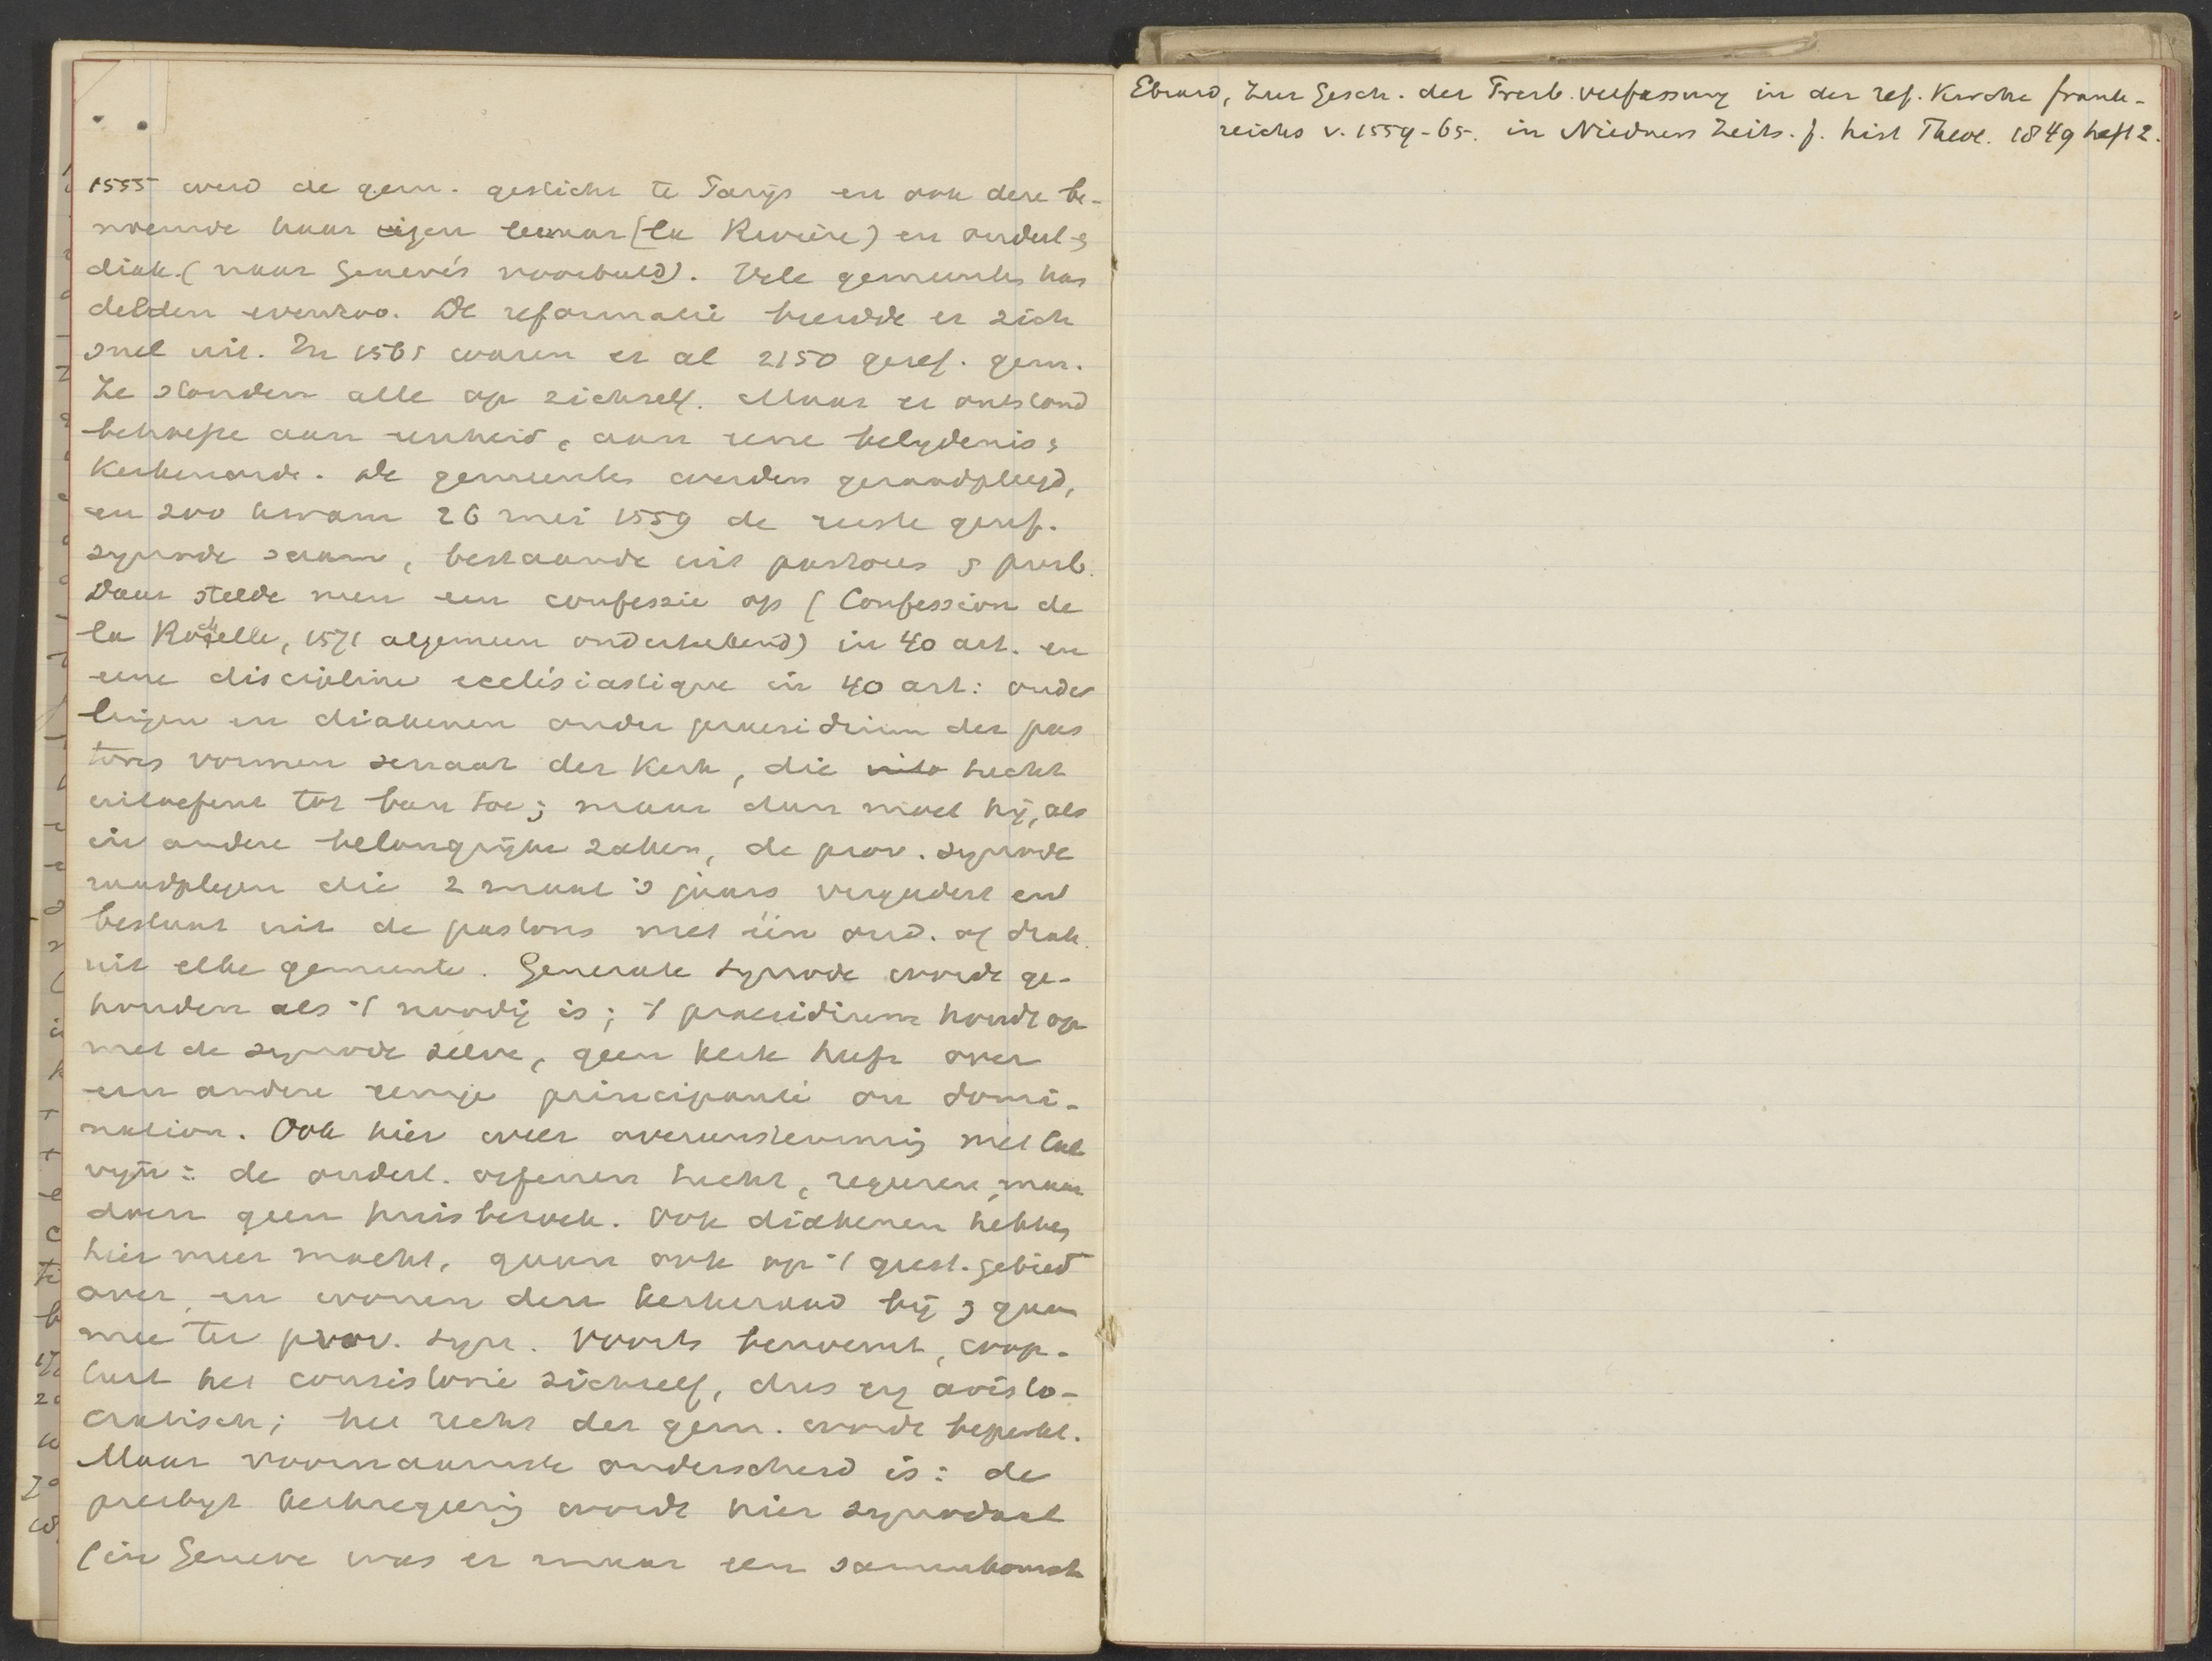 1555 werd de gem. gesticht te Parijs en ook deze be-
noemde haar eigen leeraar (la Rivière) en ouderl. &
diak. (naar Genève's voorbeeld). Vele gemeentes han
delden evenzoo. De reformatie breidde er zich
snel uit. In 1565 waren er al 2150 geref. gem.
Ze stonden alle op zichzelf. Maar er ontstond
behoefte aan eenheid, aan eene belydenis &
Kerkenorde. De gemeentes werden geraadpleegd,
en zoo kwam 26 mei 1559 de eerste geref.
synode saam, bestaande uit pastores & presb.
Daar stelde men een confessie op (Confession de
la Rochelle, 1571 algemeen onderteekend) in 40 art. en
eene discipline ecclésiastique in 40 art: ouder
lingen en diakenen onder praesidium der pas
tores vormen senaat der Kerk, die tucht
uitoefent tot ban toe; maar dan moet hij, als
in andere belangrijke zaken, de prov. synode
raadplegen die 2 maal 's jaars vergadert en
bestaat uit de pastores met één oud. of diak.
uit elke gemeente. Generale synode wordt ge-
houden als 't noodig is; 't praesidium houdt op
met de synode zelve, geen kerk heeft over
een andere eenige principauté ou domi-
nation. Ook hier weer overeenstemming met Cal
vyn: de ouderl. oefenen tucht, regeren, maar
doen geen huisbezoek. Ook diakenen hebben
hier meer macht, gaan ook op 't geest. gebied
over, en wonen den kerkeraad bij & gaan
mee ter prov. syn. Voorts benoemt, coop-
teert het consistorie zichzelf, dus erg aristo-
cratisch; het recht der gem. wordt beperkt.
Maar voornaamste onderscheid is: de
presbyt kerkregering wordt hier synodaal
(in Geneve was er maar een samenkomst
Ebrard, Zur Gesch. der Presb. verfassung in der ref. Kirche Frank-
reichs v. 1559-65. in Niedners Zeits. f. hist Theol. 1849 heft 2.